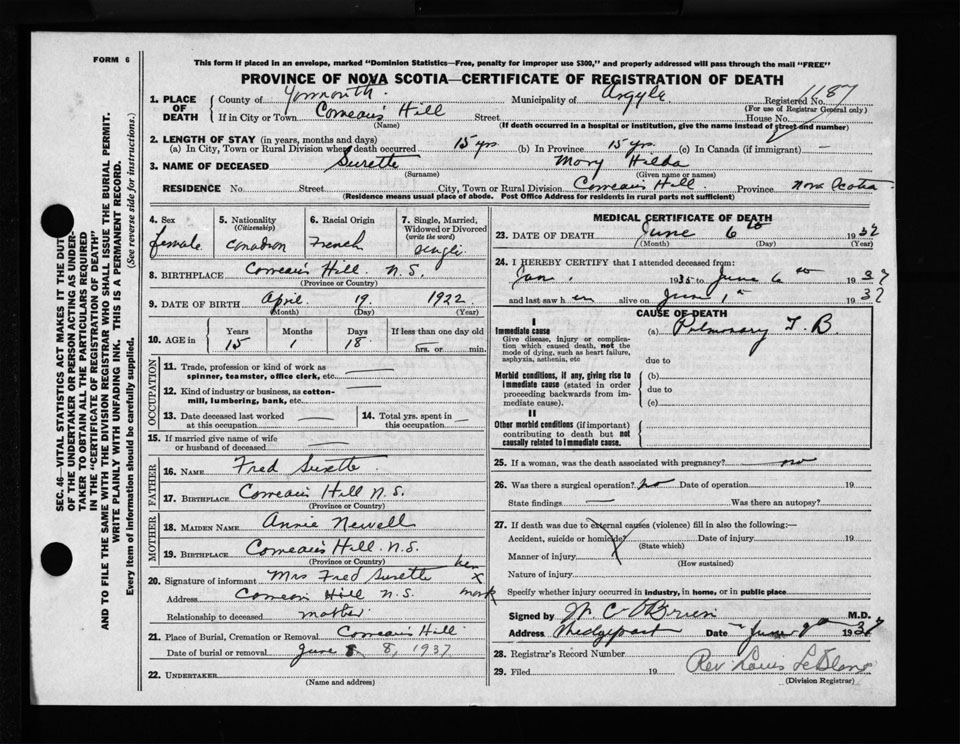 FORM 6
This form if placed in an envelope, marked "Dominion Statistics—Free, penalty for improper use $300," and properly addressed will pass through the mail "FREE"
PROVINCE OF NOVA SCOTIA—CERTIFICATE OF REGISTRATION OF DEATH
1. PLACE OF DEATH County of Yarmouth. Municipality of Argyle Registered No. 1187
(For use of Registrar General only)
If in City or Town Comeau's Hill Street House No.
(Name) (If death occurred in a hospital or institution, give the name instead of street and number)
2. LENGTH OF STAY (in years, months and days)
(a) In City, Town or Rural Division where death occurred 15 yrs. (b) In Province 15 yrs. (c) In Canada (if immigrant) —
3. NAME OF DECEASED Surette Mary Hilda
(Surname) (Given name or names)
RESIDENCE No. Street City, Town or Rural Division Comeau's Hill. Province Nova Scotia
(Residence means usual place of abode. Post Office Address for residents in rural parts not sufficient)
4. Sex female
5. Nationality (Citizenship) Canadian
6. Racial Origin French
7. Single, Married, Widowed or Divorced (write the word) Single
8. BIRTHPLACE Comeau's Hill N.S.
(Province or Country)
9. DATE OF BIRTH April 19 1922
(Month) (Day) (Year)
10. AGE in Years 15 Months 1 Days 18 If less than one day old hrs. or min.
OCCUPATION
11. Trade, profession or kind of work as spinner, teamster, office clerk, etc. —
12. Kind of industry or business, as cotton-mill, lumbering, bank, etc. —
13. Date deceased last worked at this occupation —
14. Total yrs. spent in this occupation —
15. If married give name of wife or husband of deceased —
FATHER
16. NAME Fred Surette
17. BIRTHPLACE Comeau's Hill N.S.
(Province or Country)
MOTHER
18. MAIDEN NAME Annie Newell
19. BIRTHPLACE Comeau's Hill. N.S.
(Province or Country)
20. Signature of informant Mrs Fred Surette her x mark
Address Comeau's Hill N.S.
Relationship to deceased mother
21. Place of Burial, Cremation or Removal Comeau's Hill
Date of burial or removal June 8, 1937
22. UNDERTAKER
(Name and address)
MEDICAL CERTIFICATE OF DEATH
23. DATE OF DEATH June 6th 1937
(Month) (Day) (Year)
24. I HEREBY CERTIFY that I attended deceased from:
Jan. 1935 to June 6th 1937
and last saw her alive on June 1st 1937
CAUSE OF DEATH
I
Immediate cause
Give disease, injury or complication which caused death, not the mode of dying, such as heart failure, asphyxia, asthenia, etc
(a) Pulmonary T.B.
due to
Morbid conditions, if any, giving rise to immediate cause (stated in order proceeding backwards from immediate cause).
(b)
due to
(c)
II
Other morbid conditions (if important) contributing to death but not causally related to immediate cause.
25. If a woman, was the death associated with pregnancy? no
26. Was there a surgical operation? no Date of operation 19
State findings — Was there an autopsy?
27. If death was due to external causes (violence) fill in also the following:—
Accident, suicide or homicide? Date of injury 19
(State which)
Manner of injury
(How sustained)
Nature of injury
Specify whether injury occurred in industry, in home, or in public place
Signed by W C O'Brien M.D.
Address Wedgeport Date June 9th 1937
28. Registrar's Record Number
29. Filed 19 Rev Louis LeBlanc
(Division Registrar)
SEC. 46—VITAL STATISTICS ACT MAKES IT THE DUTY
OF THE UNDERTAKER OR PERSON ACTING AS UNDER-
TAKER TO OBTAIN ALL THE PARTICULARS REQUIRED
IN THE "CERTIFICATE OF REGISTRATION OF DEATH"
AND TO FILE THE SAME WITH THE DIVISION REGISTRAR WHO SHALL ISSUE THE BURIAL PERMIT.
WRITE PLAINLY WITH UNFADING INK. THIS IS A PERMANENT RECORD.
Every item of information should be carefully supplied. (See reverse side for instructions.)